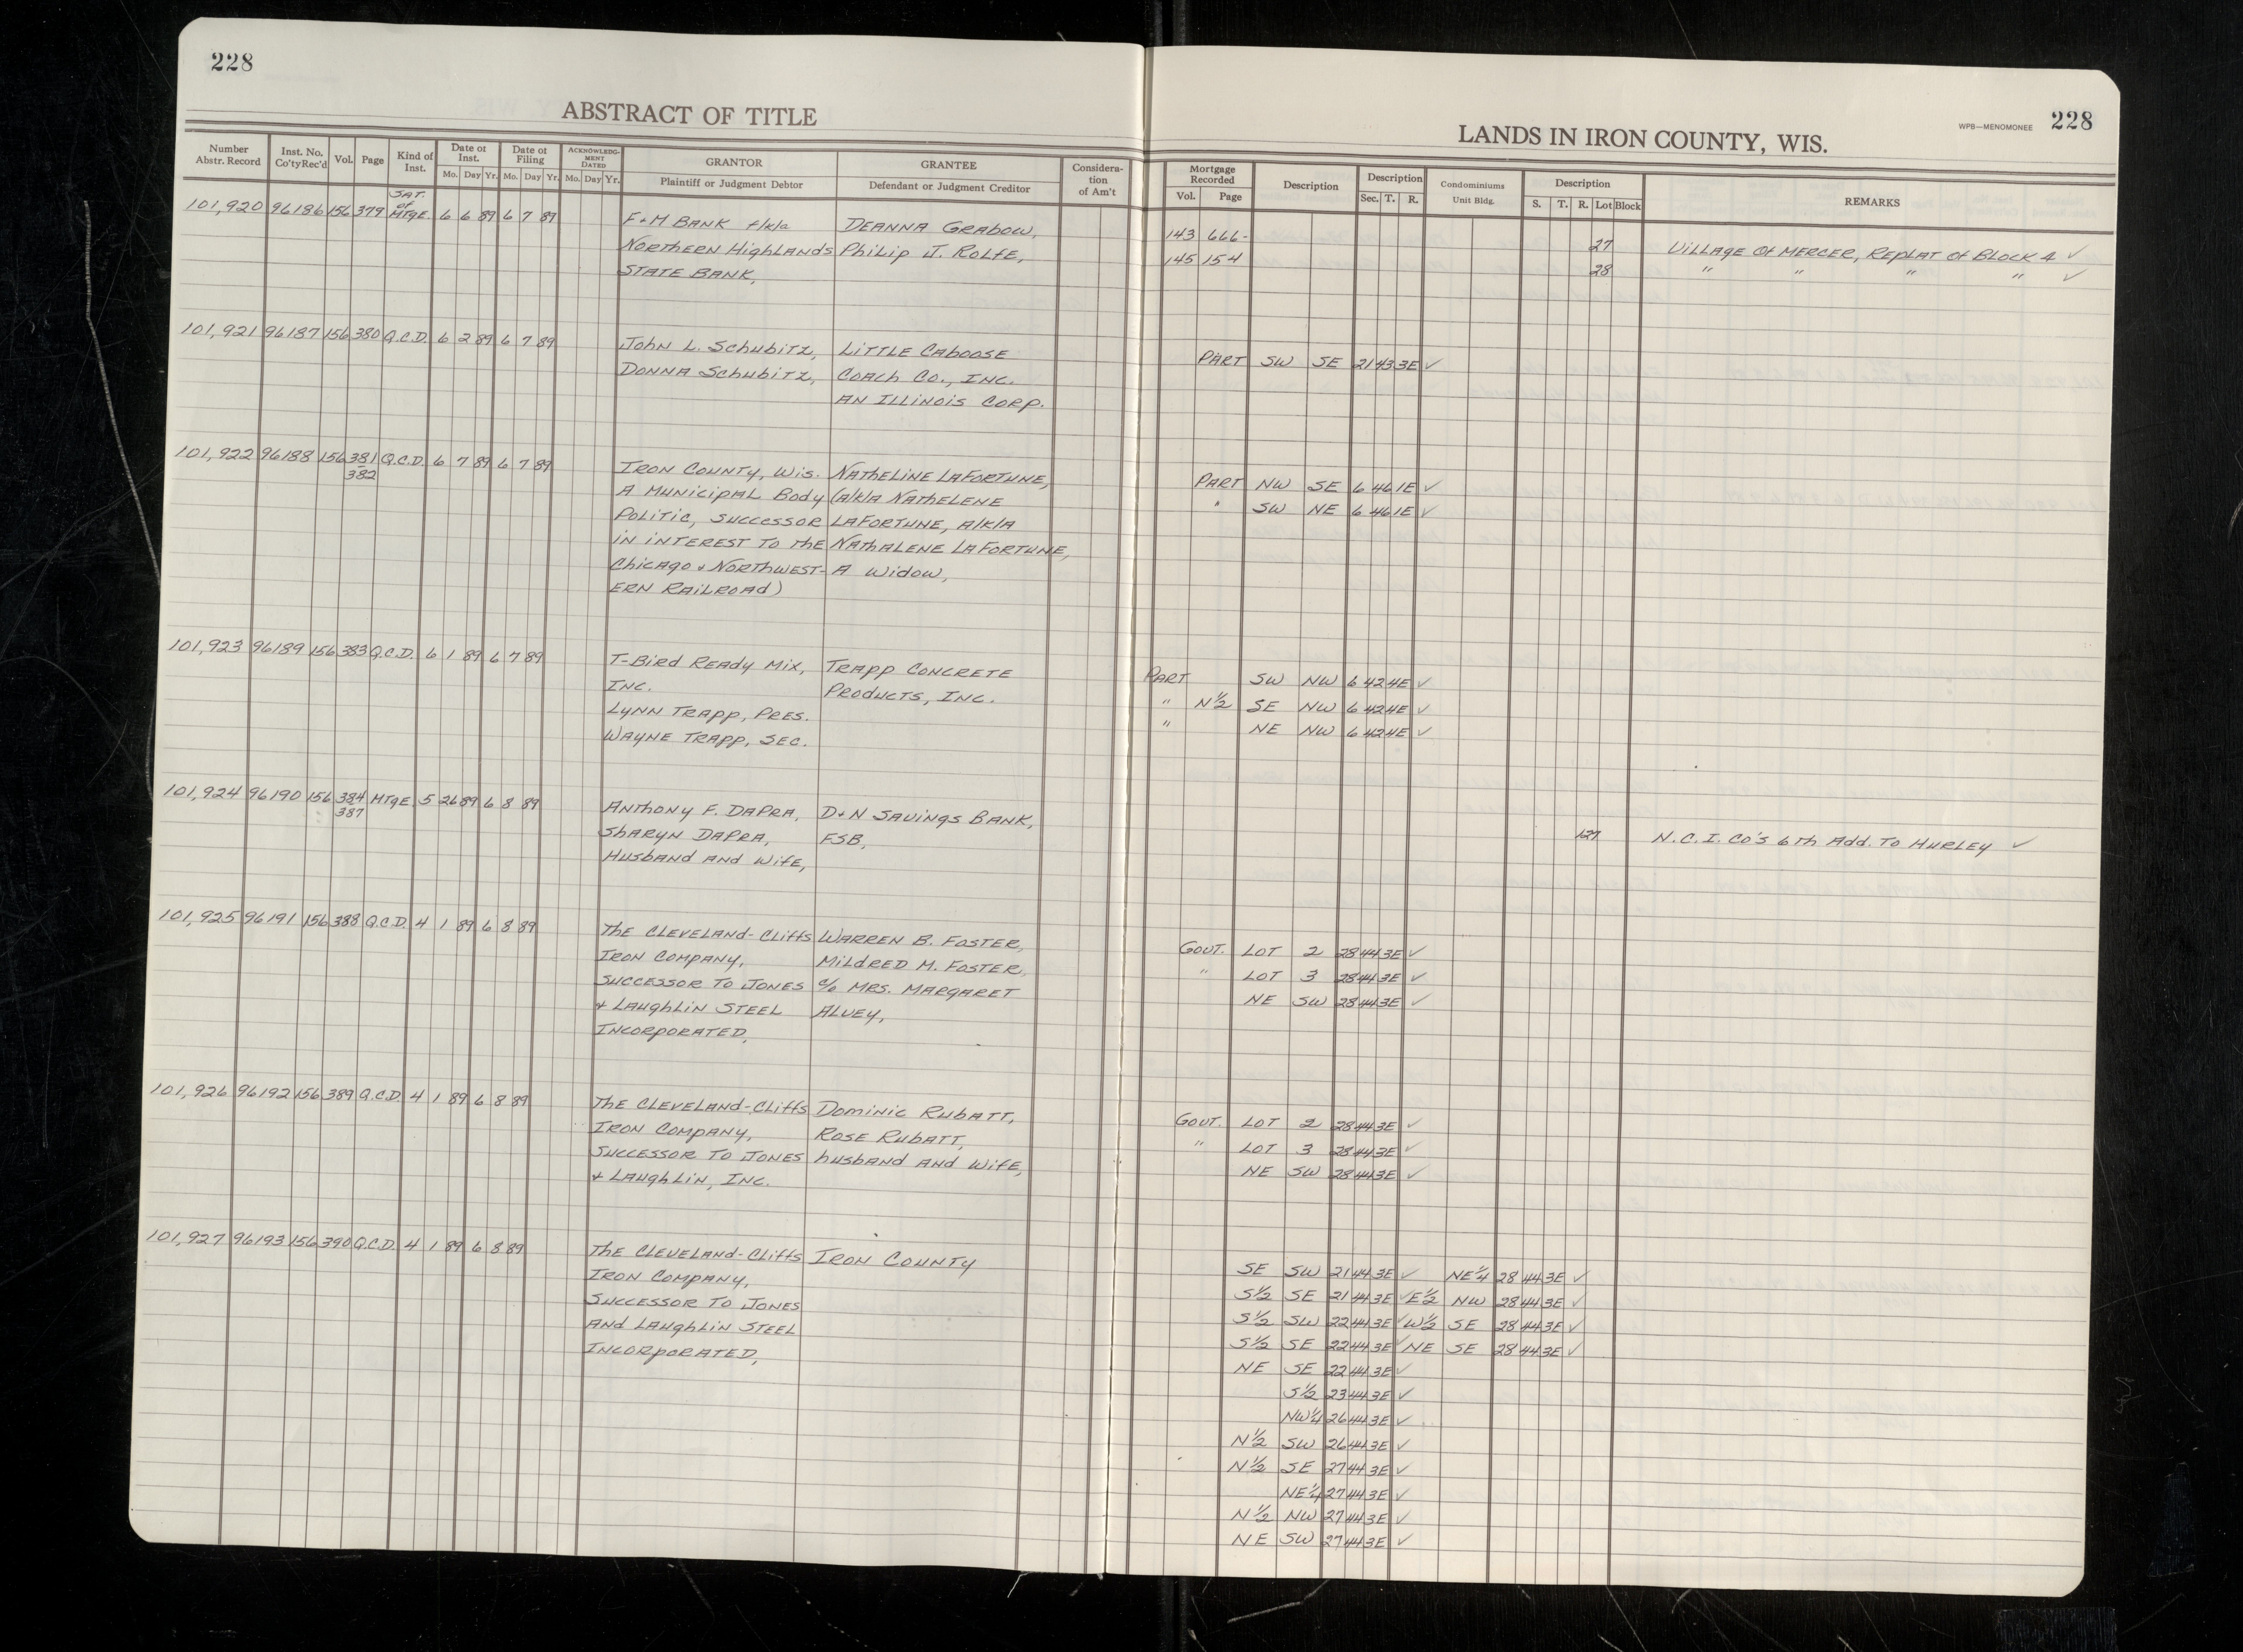 228
ABSTRACT OF TITLE
Number Abstr. Record | Inst. No. Co'ty Rec'd | Vol. | Page | Kind of Inst. | Date of Inst. Mo. Day Yr. | Date of Filing Mo. Day Yr. | ACKNOWLEDGMENT DATED Mo. Day Yr. | GRANTOR Plaintiff or Judgment Debtor | GRANTEE Defendant or Judgment Creditor | Consideration of Am't
101,920 96186 156 379 SAT. of MTgE. 6 6 89 6 7 89
F+M BANK f/k/a DEANNA GRABOW,
NORTHERN HIGHLANDS PHILIP J. ROLFE,
STATE BANK,
101,921 96187 156 380 Q.C.D. 6 2 89 6 7 89
JOHN L. SCHUBITZ, LITTLE CABOOSE
DONNA SCHUBITZ, COACH CO., INC.
AN ILLINOIS CORP.
101,922 96188 156 381 382 Q.C.D. 6 7 89 6 7 89
IRON COUNTY, WIS. NATHELINE LAFORTUNE,
A MUNICIPAL BODY (A/K/A NATHELENE
POLITIC, SUCCESSOR LAFORTUNE, A/K/A
IN INTEREST TO THE NATHALENE LAFORTUNE,
CHICAGO & NORTHWEST- A WIDOW,
ERN RAILROAD)
101,923 96189 156 383 Q.C.D. 6 1 89 6 7 89
T-BIRD READY MIX, TRAPP CONCRETE
INC. PRODUCTS, INC.
LYNN TRAPP, PRES.
WAYNE TRAPP, SEC.
101,924 96190 156 384 387 MTgE 5 26 89 6 8 89
ANTHONY F. DAPRA, D+N SAVINGS BANK,
SHARYN DAPRA, FSB,
HUSBAND AND WIFE,
101,925 96191 156 388 Q.C.D. 4 1 89 6 8 89
THE CLEVELAND-CLIFFS WARREN B. FOSTER,
IRON COMPANY, MILDRED M. FOSTER,
SUCCESSOR TO JONES c/o MRS. MARGARET
+ LAUGHLIN STEEL ALVEY,
INCORPORATED,
101,926 96192 156 389 Q.C.D. 4 1 89 6 8 89
THE CLEVELAND-CLIFFS DOMINIC RUBATT,
IRON COMPANY, ROSE RUBATT,
SUCCESSOR TO JONES HUSBAND AND WIFE,
+ LAUGHLIN, INC.
101,927 96193 156 390 Q.C.D. 4 1 89 6 8 89
THE CLEVELAND-CLIFFS IRON COUNTY
IRON COMPANY,
SUCCESSOR TO JONES
AND LAUGHLIN STEEL
INCORPORATED,
WPB—MENOMONEE 228
LANDS IN IRON COUNTY, WIS.
Mortgage Recorded Vol. Page | Description | Description Sec. T. R. | Condominiums Unit Bldg. | Description S. T. R. Lot Block | REMARKS
143 666- 27 VILLAGE OF MERCER, REPLAT OF BLOCK 4 ✓
145 154 28 " " " " ✓
PART SW SE 21 43 3E ✓
PART NW SE 6 46 1E ✓
" SW NE 6 46 1E ✓
PART SW NW 6 42 4E ✓
" N½ SE NW 6 42 4E ✓
" NE NW 6 42 4E ✓
127 N.C.I. CO'S 6TH ADD. TO HURLEY ✓
GOVT. LOT 2 28 44 3E ✓
" LOT 3 28 44 3E ✓
NE SW 28 44 3E ✓
GOVT. LOT 2 28 44 3E ✓
" LOT 3 28 44 3E ✓
NE SW 28 44 3E ✓
SE SW 21 44 3E ✓ NE¼ 28 44 3E ✓
S½ SE 21 44 3E ✓ E½ NW 28 44 3E ✓
S½ SW 22 44 3E ✓ W½ SE 28 44 3E ✓
S½ SE 22 44 3E ✓ NE SE 28 44 3E ✓
NE SE 22 44 3E ✓
S½ 23 44 3E ✓
NW¼ 26 44 3E ✓
N½ SW 26 44 3E ✓
N½ SE 27 44 3E ✓
NE¼ 27 44 3E ✓
N½ NW 27 44 3E ✓
NE SW 27 44 3E ✓